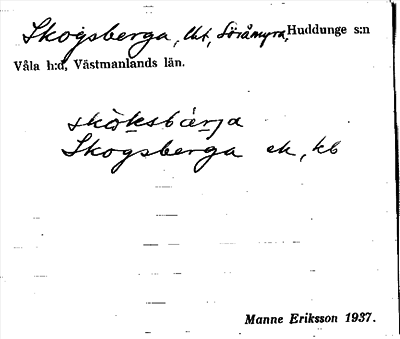 Skogsberga, lht, Söråmyra, Huddunge s:n
Våla h:d, Västmanlands län.
skòksbàrja
Skogsberga ek, kb
Manne Eriksson 1937.